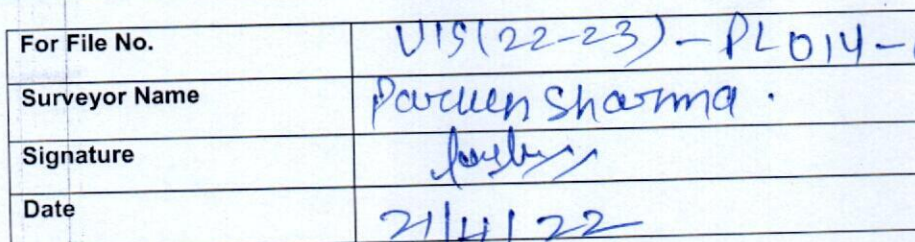 For File No. VIS(22-23)-PL014-
Surveyor Name Parveen Sharma.
Signature
Date 21/4/22